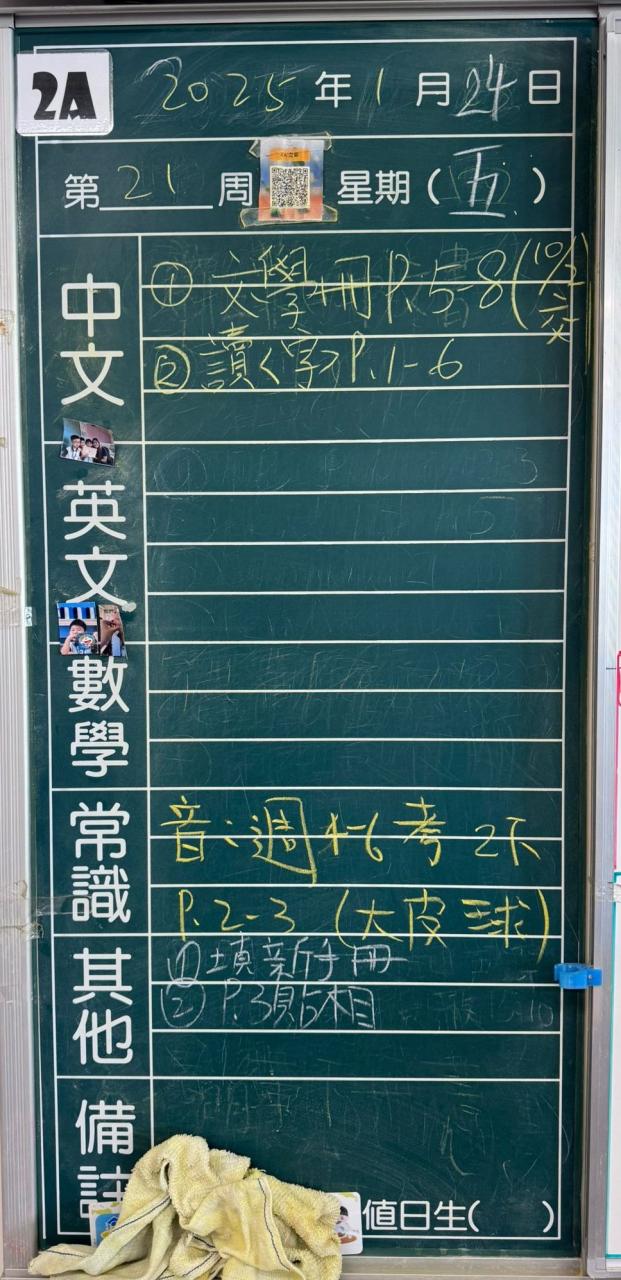 2A
2025年1月24日
第21周 星期(五)
中文
① 文學冊P.5-8(10/2
交
② 讀<字>P.1-6
英文
數學
常識
音:週 考 2下
P.2-3(大皮球)
其他
① 填新手冊
② P.3貼相
備註
值日生( )